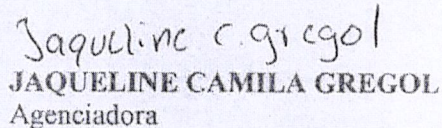 Jaqueline C. gregol
JAQUELINE CAMILA GREGOL
Agenciadora